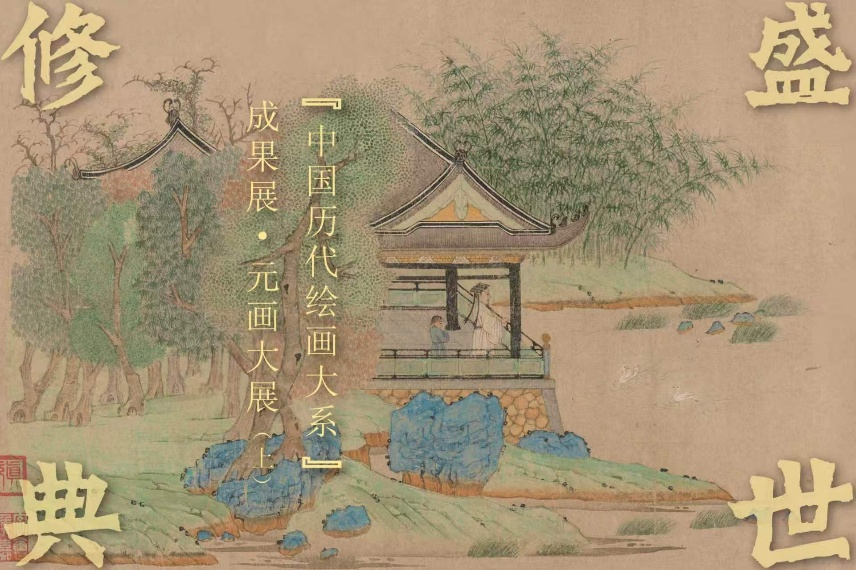 盛世
修典
『中国历代绘画大系』
成果展·元画大展（上）